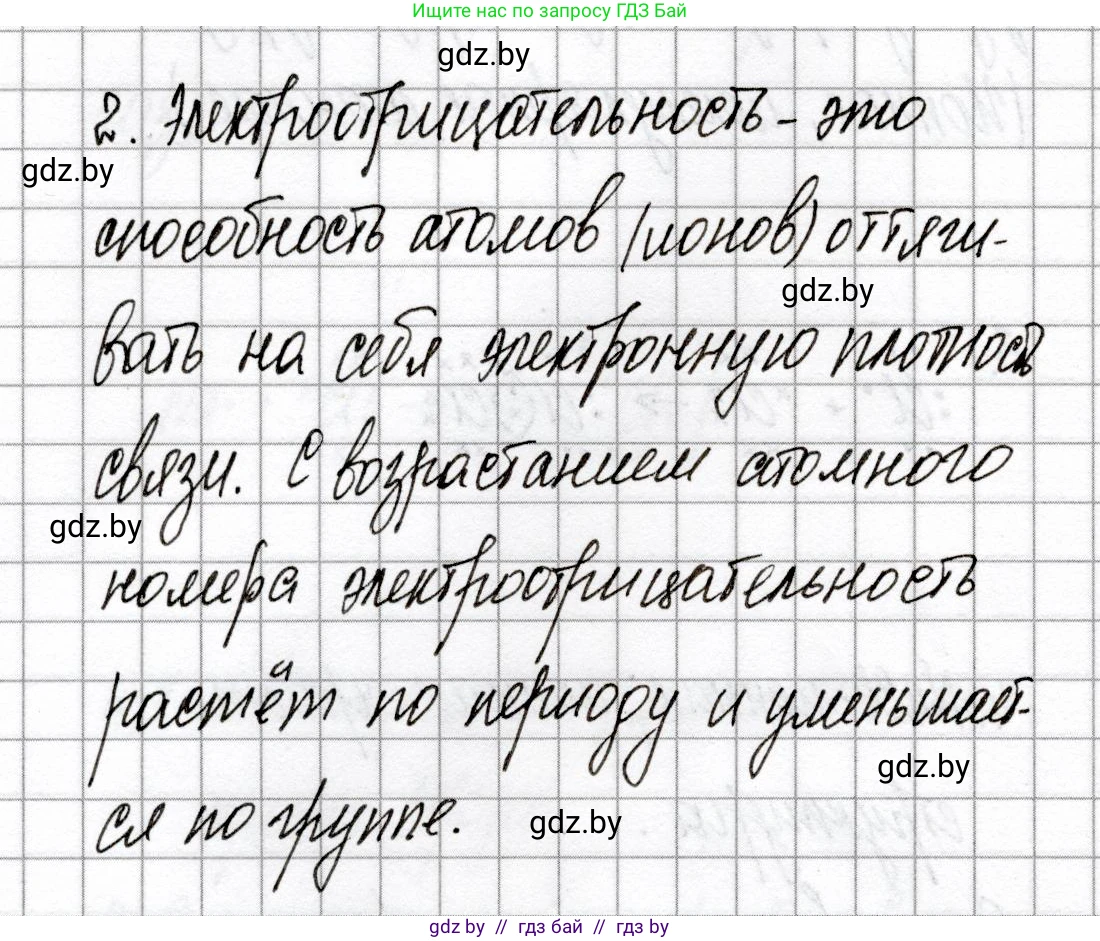 Ищите нас по запросу ГДЗ Бай
gdz.by
2. Электроотрицательность - это
gdz.by
способность атомов (ионов) оттяги-
gdz.by
вать на себя электронную плотность
связи. С возрастанием атомного
gdz.by
номера электроотрицательность
растёт по периоду и уменьшает-
gdz.by
ся по группе.
gdz.by
gdz.by // гдз бай // гдз by